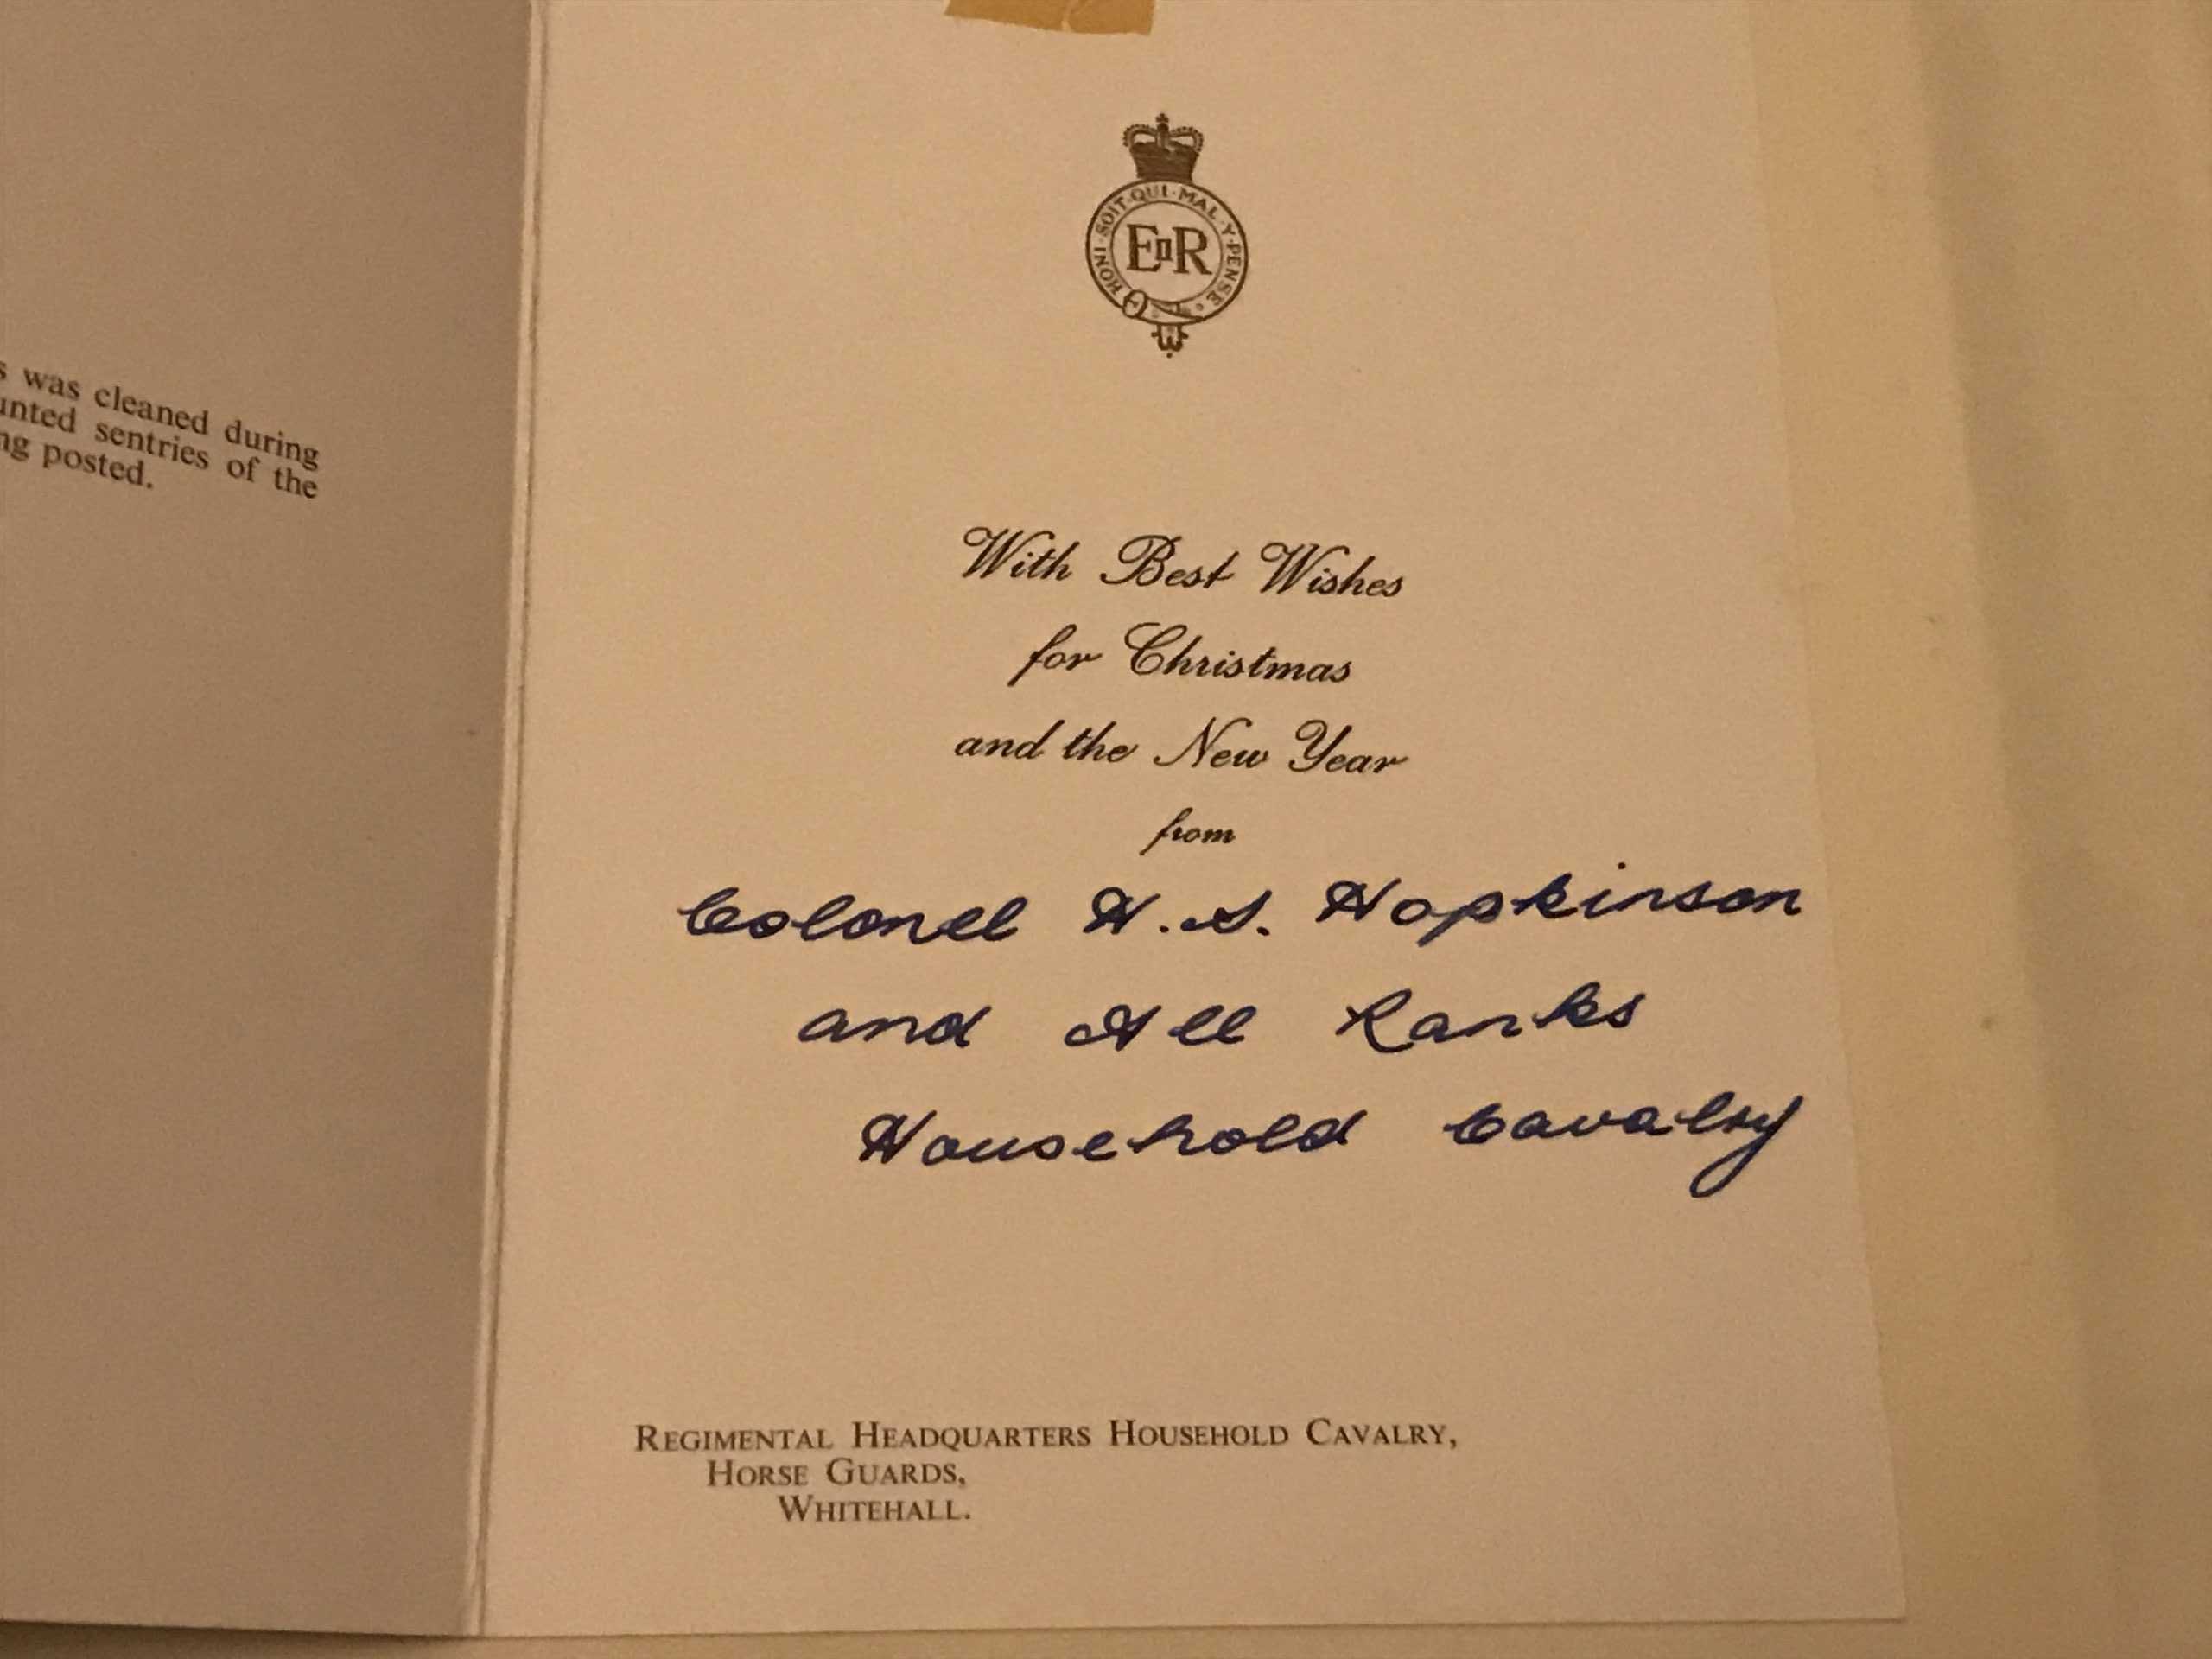 was cleaned during
sentries of the
posted.
HONI · SOIT · QUI · MAL · Y · PENSE
EIIR
With Best Wishes
for Christmas
and the New Year
from
Colonel H.S. Hopkinson
and All Ranks
Household Cavalry
REGIMENTAL HEADQUARTERS HOUSEHOLD CAVALRY,
HORSE GUARDS,
WHITEHALL.